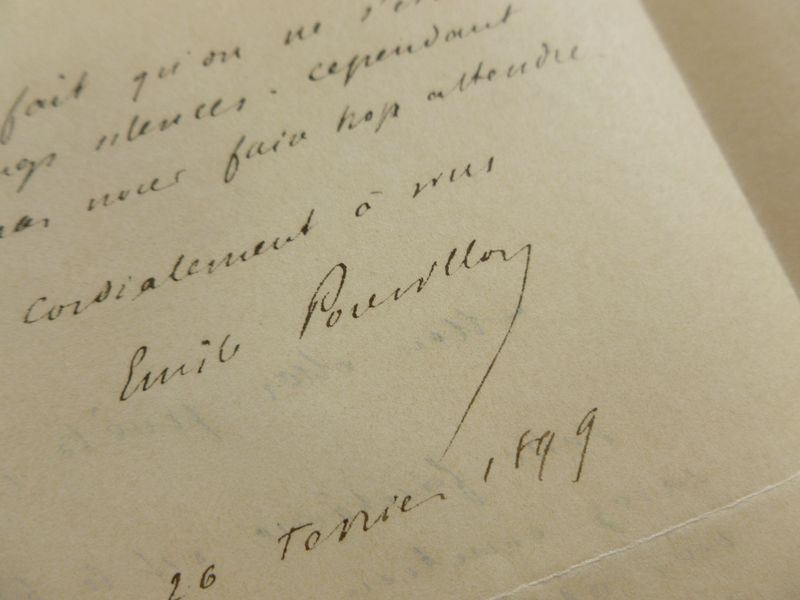 fait qu'on ne
silences. cependant
pas nous faire trop attendre.
cordialement à vous
Emile Pouvillon
26 février 1899